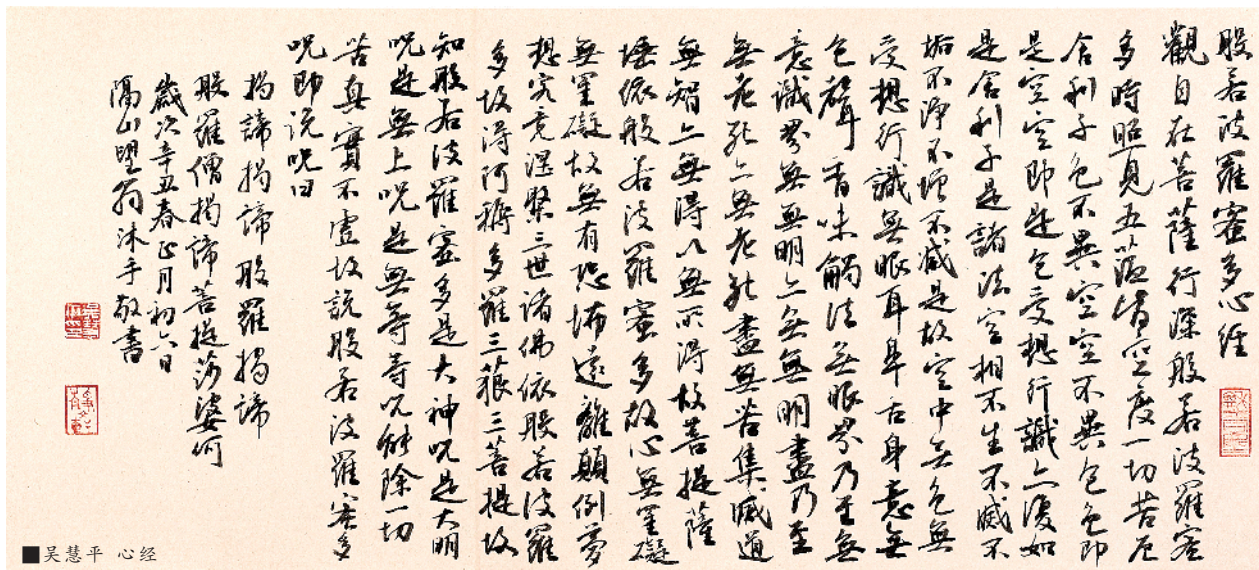 般若波羅蜜多心經
觀自在菩薩行深般若波羅蜜
多時照見五蕴皆空度一切苦厄
舍利子色不異空空不異色色即
是空空即是色受想行識亦復如
是舍利子是諸法空相不生不滅不
垢不淨不增不減是故空中無色無
受想行識無眼耳鼻舌身意無
色聲香味觸法無眼界乃至無
意識界無無明亦無無明盡乃至
無老死亦無老死盡無苦集滅道
無智亦無得以無所得故菩提薩
埵依般若波羅蜜多故心無罣礙
無罣礙故無有恐怖遠離顛倒夢
想究竟涅槃三世諸佛依般若波羅
多故得阿耨多羅三藐三菩提故
知般若波羅蜜多是大神咒是大明
咒是無上咒是無等等咒能除一切
苦真實不虛故說般若波羅蜜多
咒即說咒曰
揭諦揭諦般羅揭諦
般羅僧揭諦菩提莎婆訶
歲次辛丑春正月初六日
山翁沐手敬書
吴慧平 心经